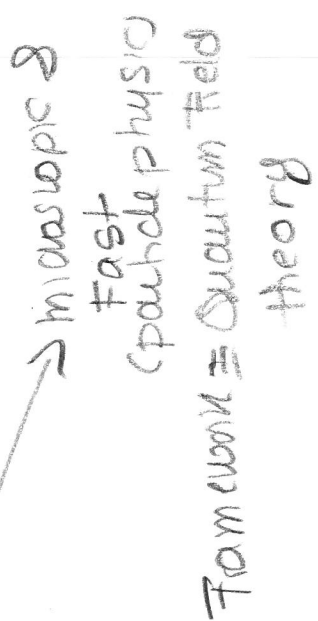 microscopic &
Fast
(particle physic)
Framework ≡ Quantum Field
theory